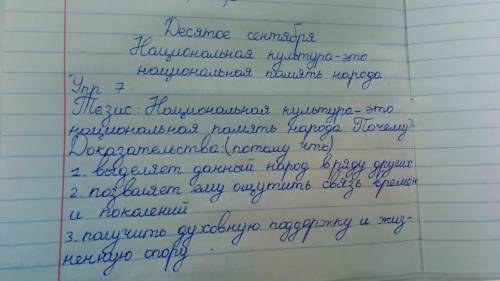 Десятое сентября
Национальная культура-это
национальная память народа
Упр 7
Тезис: Национальная культура-это
национальная память народа. Почему?
Доказательства:(потому что)
1. выделяет данный народ в ряду других
2. позваляет ему ощутить связь времён
и поколений
3. палучить духовную поддержку и жиз-
ненную опору.